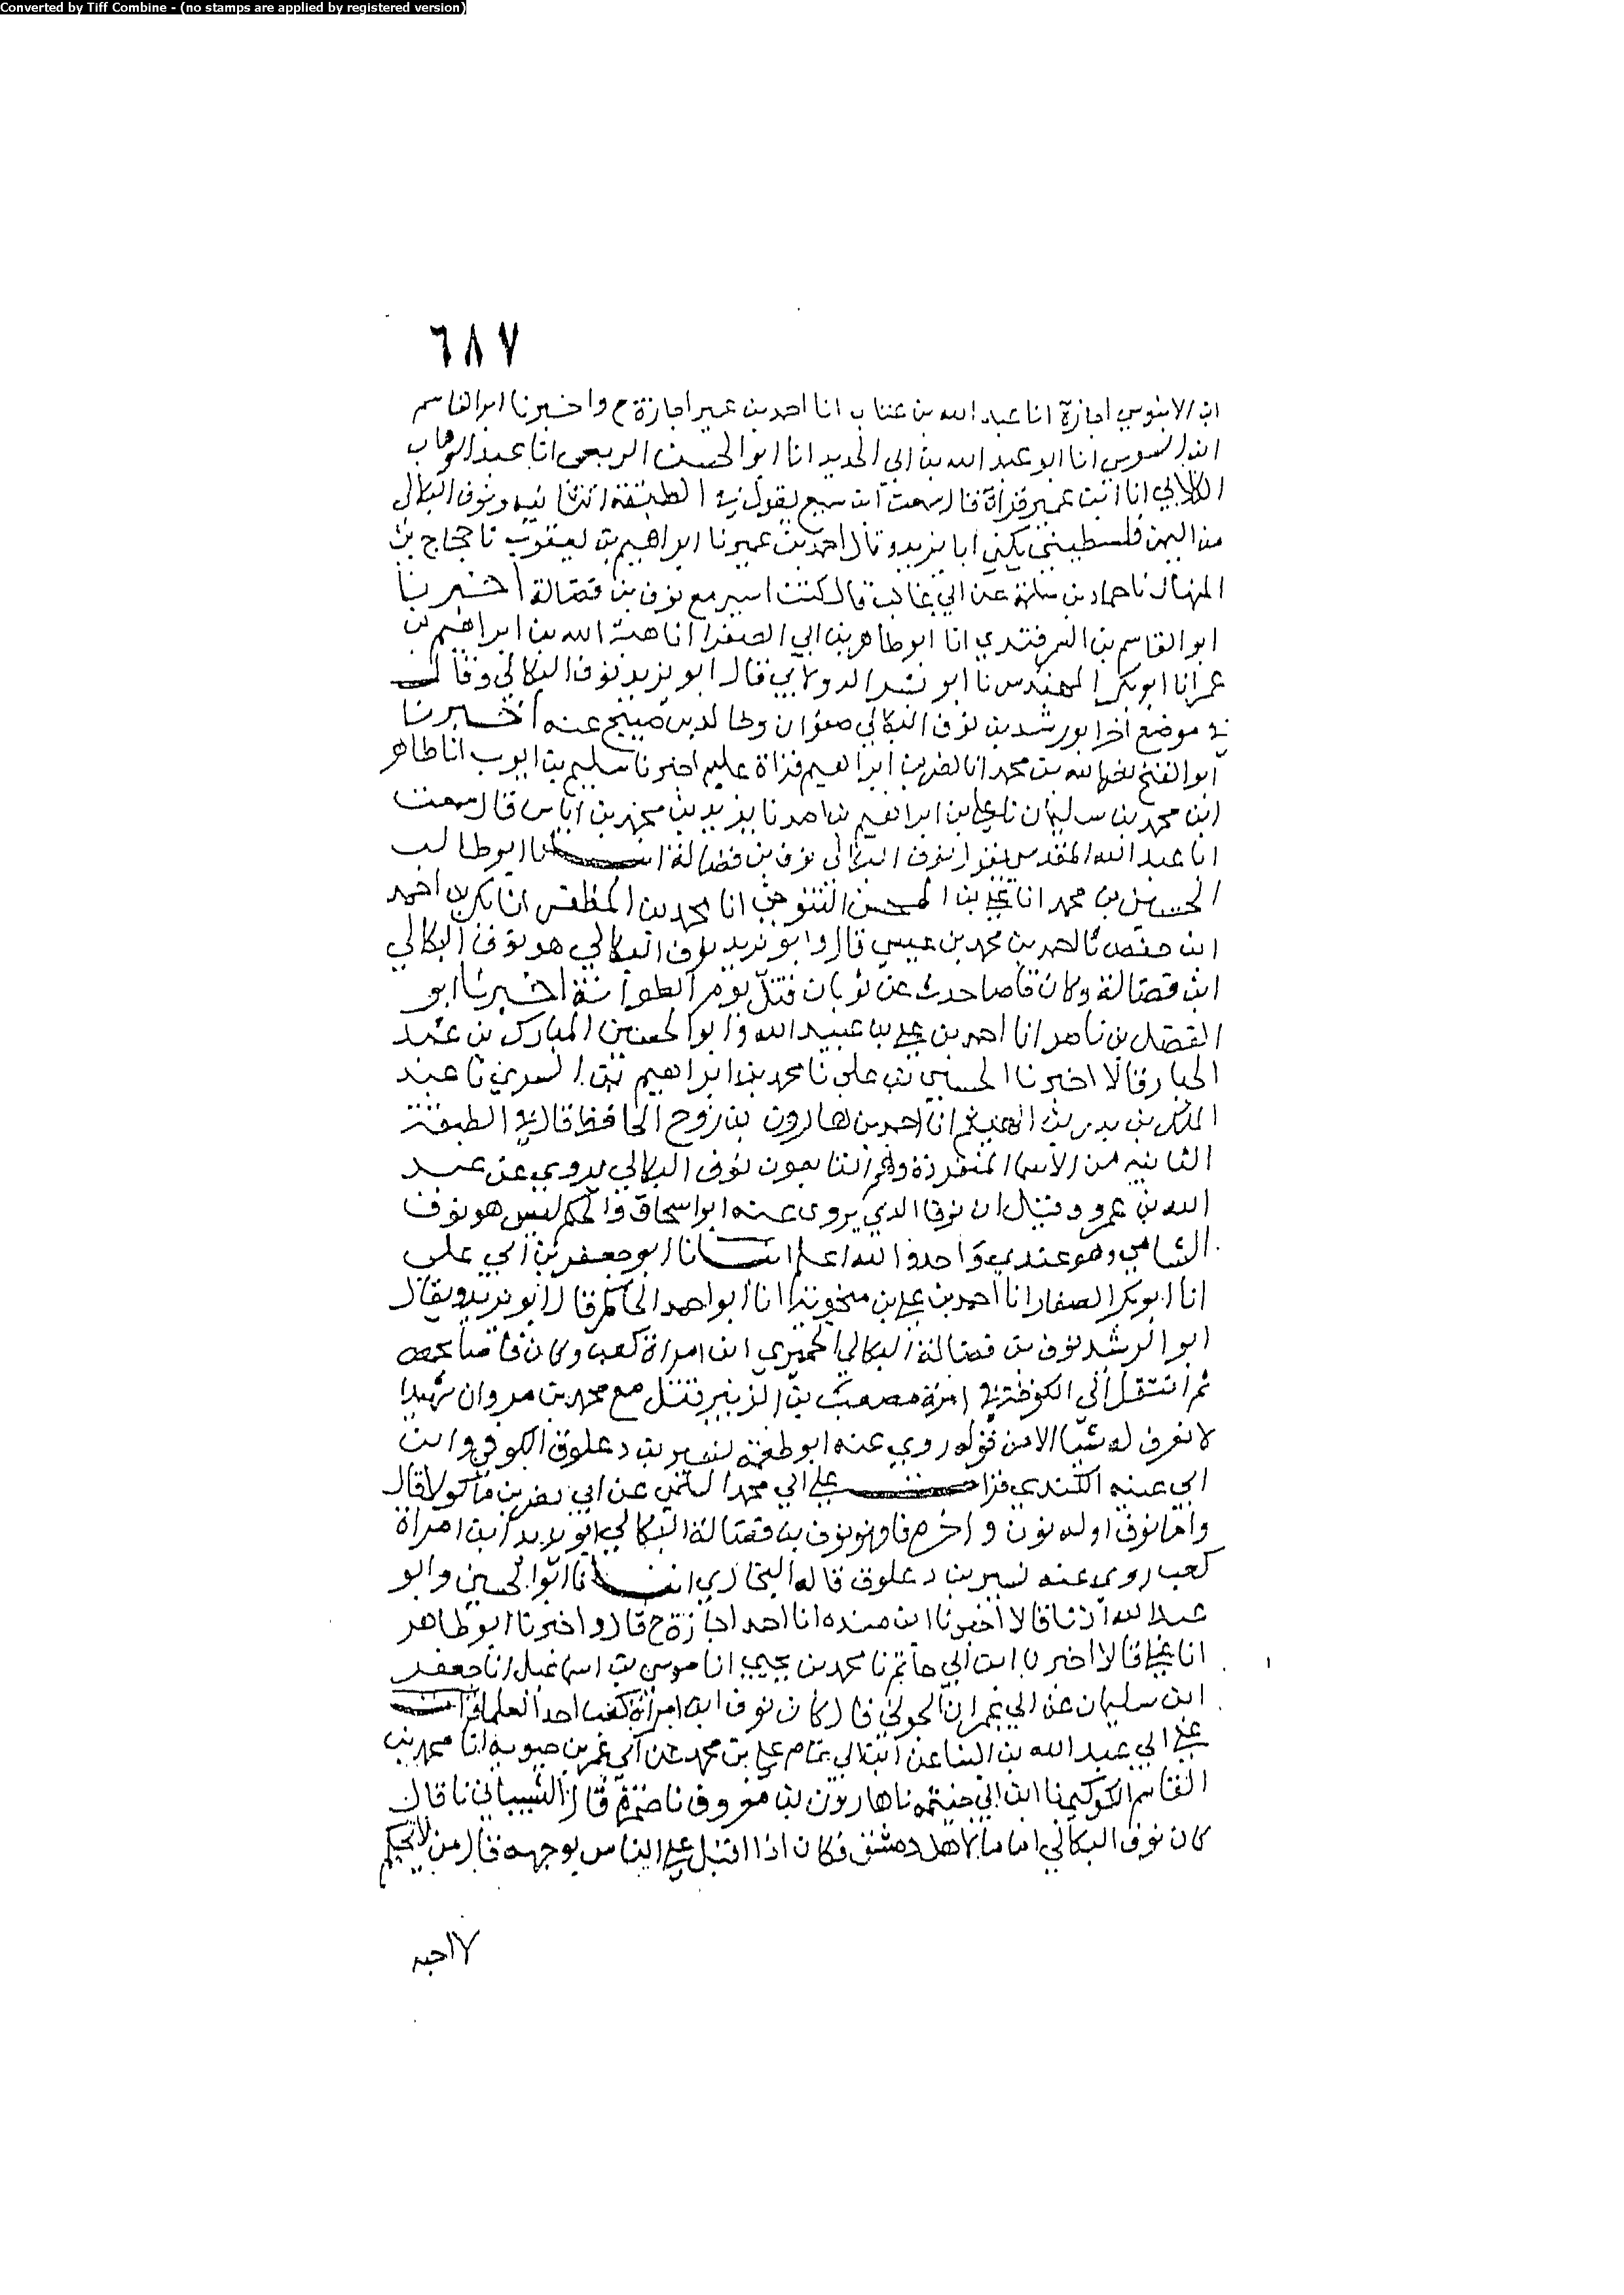 Converted by Tiff Combine - (no stamps are applied by registered version)
٦٨٧
ابن الابنوسي اجازة انا عبد الله بن عتاب انا احمد بن عمير اجازة ح واخبرنا ابو القاسم
ابن السوسي انا ابو عبد الله بن ابي الحديد انا ابو الحسن الربعي انا عبد الوهاب
الكلابي انا ابن عمير قراة قال سمعت ابن سميع يقول في الطبقة الثانيه ونوف البكالي
من اليمن فلسطيني يكني ابا يزيد وقال احمد بن عمير نا ابراهيم بن يعقوب نا حجاج بن
المنهال نا حماد بن سلمة عن ابي غالب قال كنت اسير مع نوف بن فضالة اخبرنا
ابو القاسم بن السمرقندي انا ابو طاهر بن ابي الصقر انا هبة الله بن ابراهيم بن
عمر انا ابو بكر المهندس نا ابو بشر الدولابي قال ابو يزيد نوف البكالي وقال
في موضع اخر ابو رشد بن نوف البكالي صفوان وخالد بن صبيح عنه اخبرنا
ابو الفتح نصر الله بن محمد انا نصر بن ابراهيم قراة عليه اخبرنا سليم بن ايوب انا طاهر
ابن محمد بن سليمان نا علي بن ابراهيم نا يزيد بن محمد بن اياس قال سمعت
ابا عبد الله المقدمي يقول نوف البكالي نوف بن فضالة انبانا ابو طالب
الحسين بن محمد انا علي بن المحسن التنوخي انا محمد بن المظفر انا بكر بن احمد
ابن حفص نا احمد بن محمد بن عيسي قال وابو يزيد نوف البكالي هو نوف البكالي
ابن فضالة وكان قاصا حدث عن ثوبان قتل يوم الطوانة اخبرنا ابو
الفضل بن ناصر انا احمد بن علي بن عبيد الله وابو الحسين المبارك بن عبد
الجبار قالا اخبرنا الحسين بن علي نا محمد بن ابراهيم بن السري نا عبد
الملك بن بدر بن الهيثم انا احمد بن هارون بن روح الحافظ قال في الطبقة
الثانيه من الاسما المنفردة وهم التابعون نوف البكالي يروي عن عبد
الله بن عمرو وقيل ان نوفا الذي يروي عنه ابو اسحاق والحكم ليس هو نوف
الشامي وهو عندي واحد والله اعلم انبانا ابو جعفر بن ابي علي
انا ابو بكر الصفار انا احمد بن علي بن منجويه انا ابو احمد الحاكم قال ابو يزيد ويقال
ابو الرشد نوف بن فضالة البكالي الحميري ابن امراة كعب وكان قاصا بحمص
ثم انتقل الي الكوفة في امرة مصعب بن الزبير فقتل مع محمد بن مروان شهيدا
لا نعرف له شيا الا من قوله روي عنه ابو طعمة نسير بن دعلوق الكوفي وابن
ابي عيينه الكندي قرات علي ابي محمد السلمي عن ابي نصر بن ماكولا قال
واما نوف اوله نون واخره فا فهو نوف بن فضالة البكالي ابو يزيد ابن امراة
كعب روي عنه نسير بن دعلوق قاله البخاري انبانا ابو الحسين وابو
عبد الله اذنا قالا اخبرنا ابن منده انا احمد اجازة ح قال واخبرنا ابو طاهر
انا علي قالا اخبرنا ابن ابي حاتم نا محمد بن يحيي انا موسي بن اسماعيل انا جعفر
ابن سليمان عن ابي عمران الجوني قال كان نوف ابن امراة كعب احد العلما قرات
علي ابي عبد الله بن البنا عن ابي تمام علي بن محمد عن ابي عمر بن حيويه انا محمد بن
القاسم الكوكبي نا ابن ابي خيثمه نا هارون بن معروف نا ضمرة قال الشيباني نا قال
كان نوف البكالي اماما لاهل دمشق فكان اذا اقبل علي الناس بوجهه قال من لا يحبكم